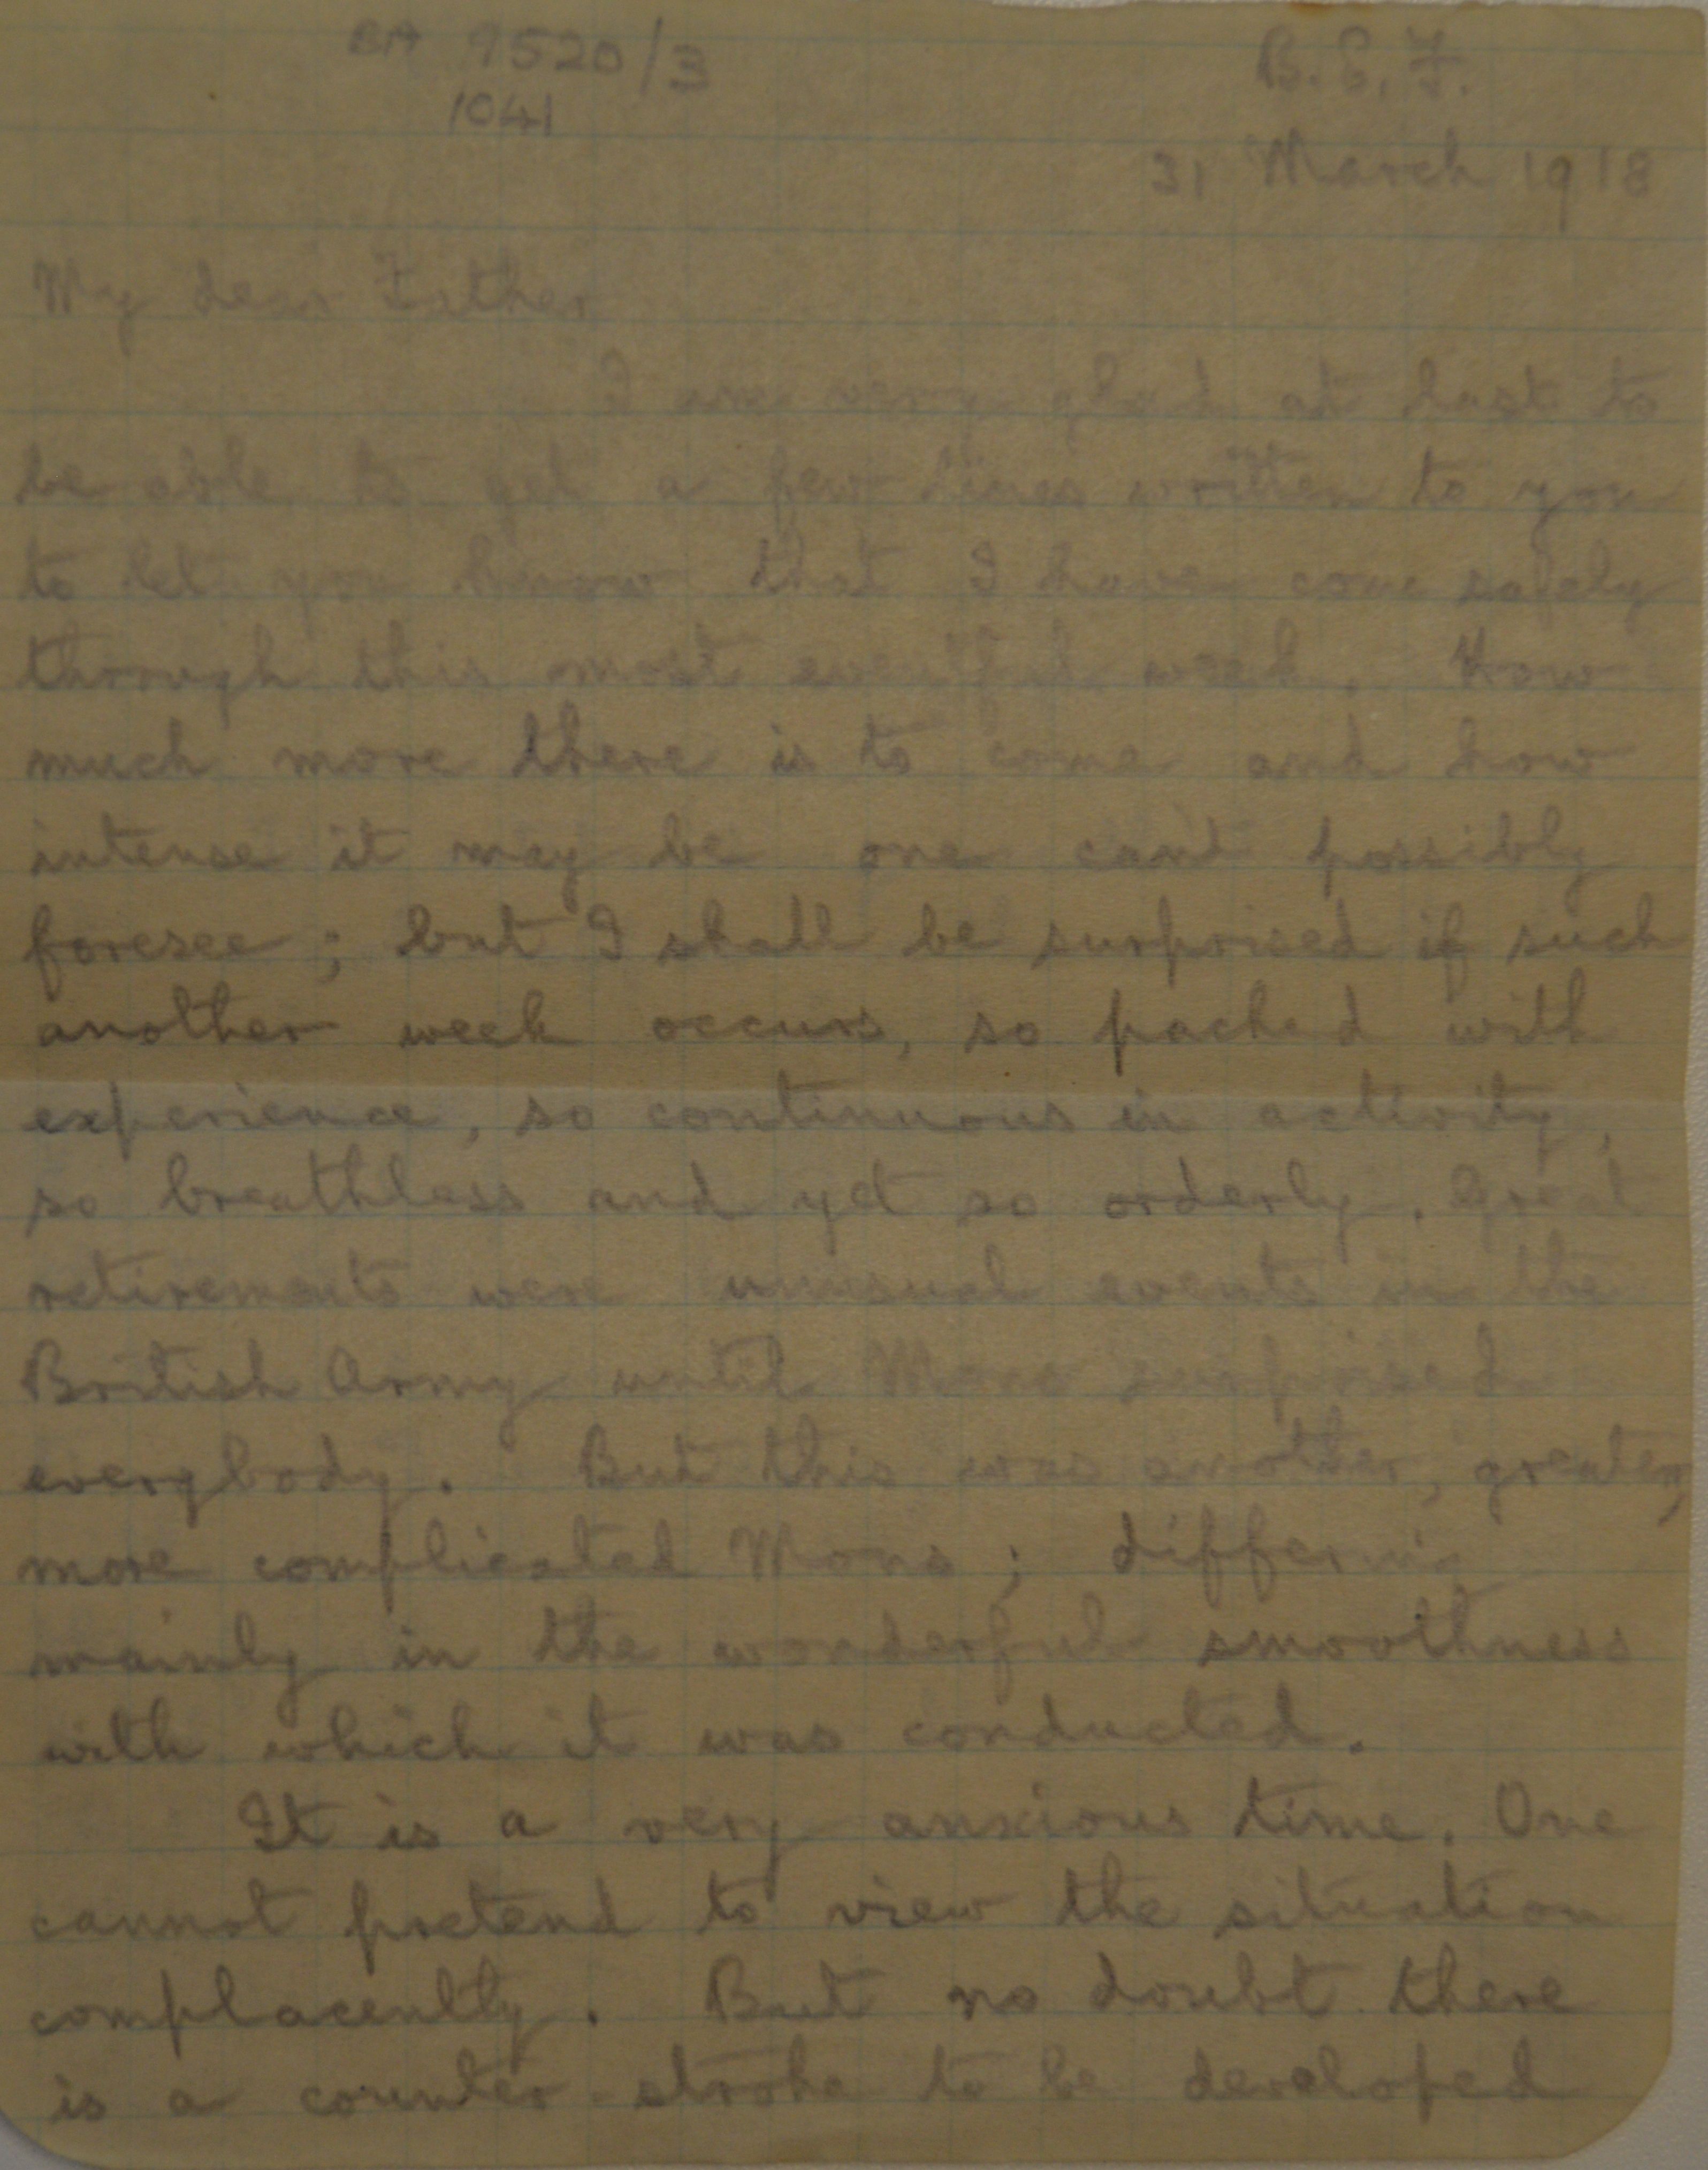 BA 9520/3
1041
B.E.F.
31 March 1918
My dear Father
I am very glad at last to
be able to get a few lines written to you
to let you know that I have come safely
through this most eventful week. How
much more there is to come and how
intense it may be one can't possibly
foresee; but I shall be surprised if such
another week occurs, so packed with
experience, so continuous in activity,
so breathless and yet so orderly. Great
retirements were unusual events in the
British Army until Mons surprised
everybody. But this was another, greater,
more complicated Mons; differing
mainly in the wonderful smoothness
with which it was conducted.
It is a very anxious time. One
cannot pretend to view the situation
complacently. But no doubt there
is a counter-stroke to be developed